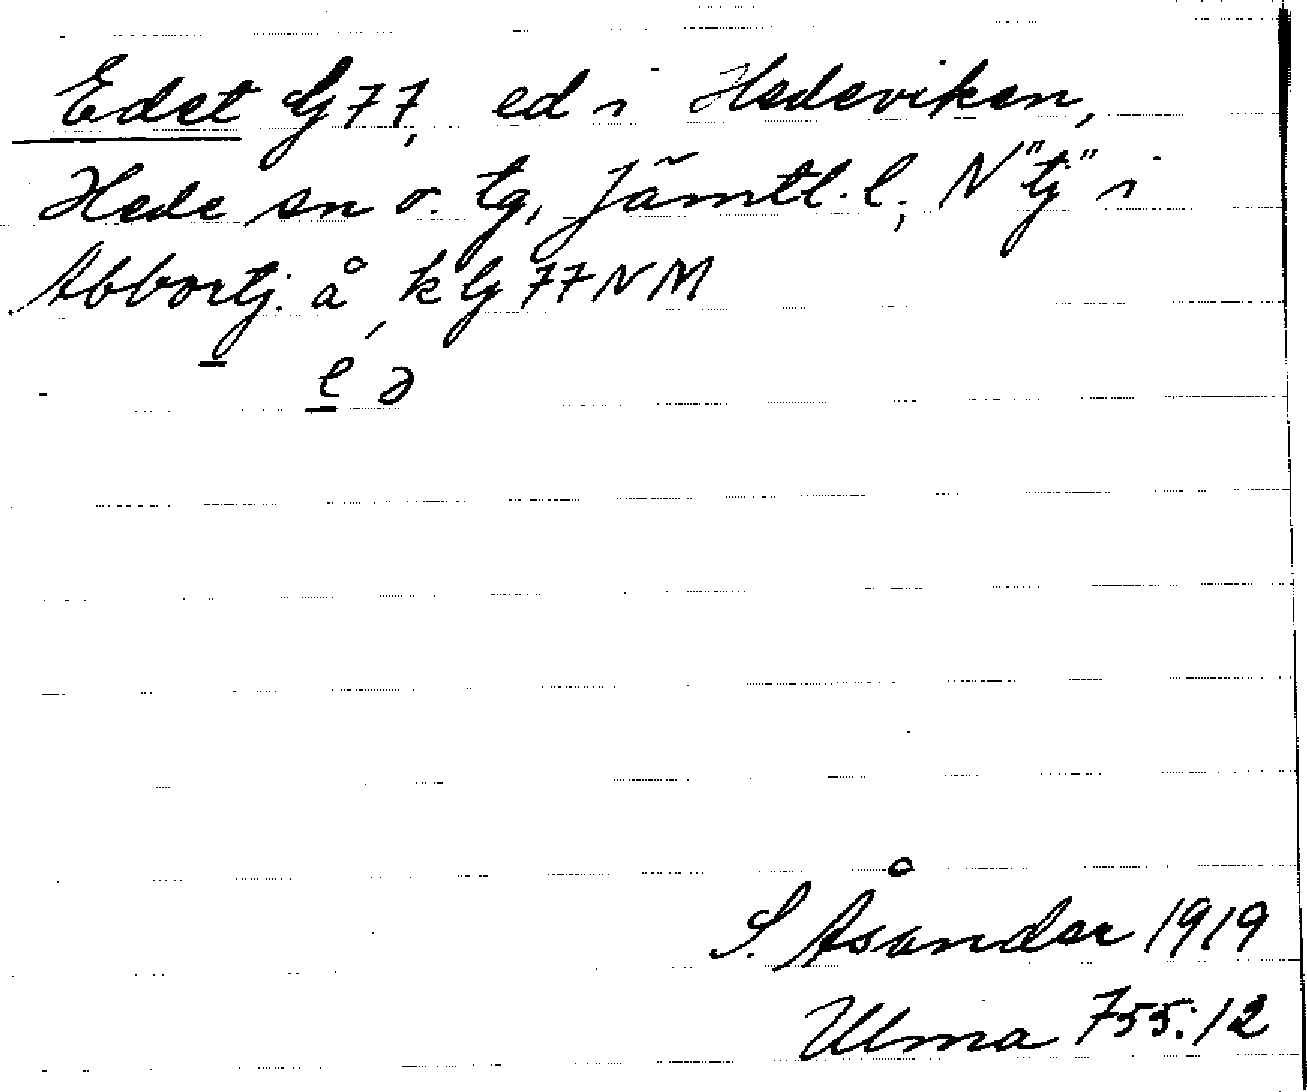 Edet Cg 77, ed i Hedeviken,
Hede sn o. tg, Jämtl. l; N "tj" i
Abbortj. å, k Cg 77 N M
e ə
S. Åsander 1919
Ulma 755:12